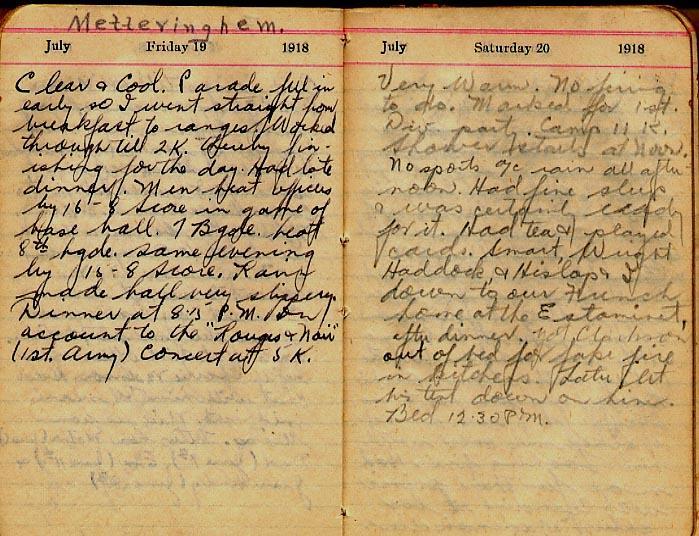 Metteringhem.
July Friday 19 1918
Clear & Cool. Parade fell in
early so I went straight from
breakfast to ranges. Worked
through till 2K. thereby fin-
ishing for the day. Had late
dinner. Men beat officers
by 16-8 score in game of
base ball. 7 Bgde. beat
8th bgde. same evening
by 16-8 score. Rain
made ball very slippery.
Dinner at 8.15 P.M. on
account to the "Rouges & Noir"
(1st. Army) Concert at 5 K.
July Saturday 20 1918
Very Warm. No firing
to do. Marked for 1st.
Div. party. Camp 11 K.
Shower starts at Noon.
No sports o/c rain all after
noon. Had fine sleep
& was certainly ready
for it. Had tea & played
cards. Smart, Wright
Haddock & Hislop & I
down to our French
home at the Estaminet,
after dinner. Got
out of bed for fake fire
in kitchens. Later let
his tent down on him.
Bed 12.30 P.M.